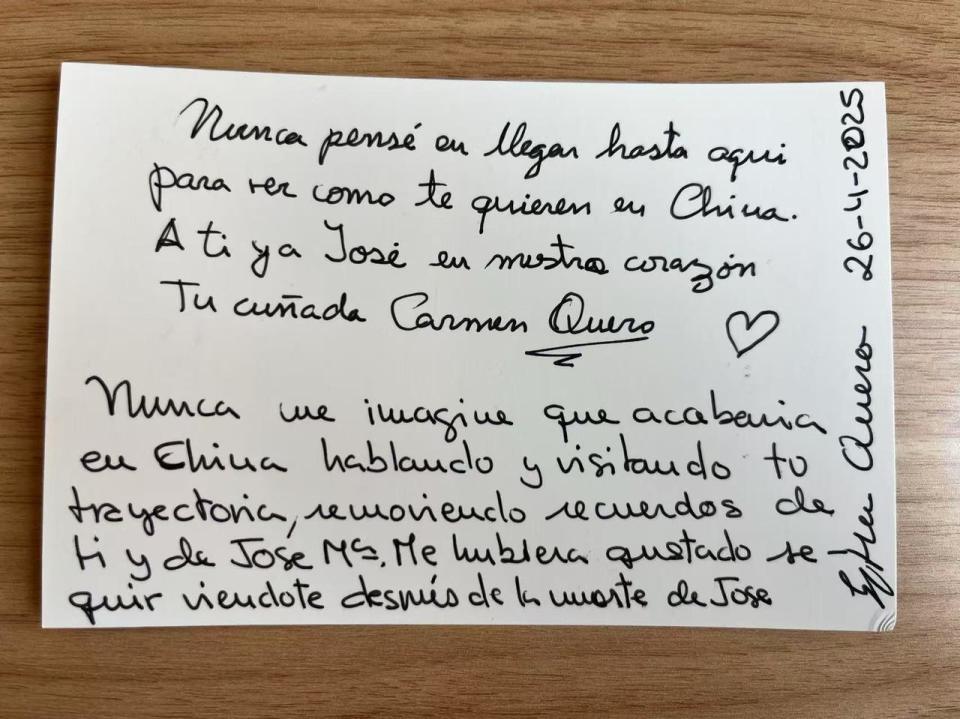 Nunca pensé en llegar hasta aqui
para ver como te quieren en China.
A ti y a José en nuestro corazón
Tu cuñada Carmen Quero
Nunca me imagine que acabaria
en China hablando y visitando tu
trayectoria, removiendo recuerdos de
ti y de José Mª. Me hubiera gustado se-
guir viendote después de la muerte de Jose
Quero 26-4-2025